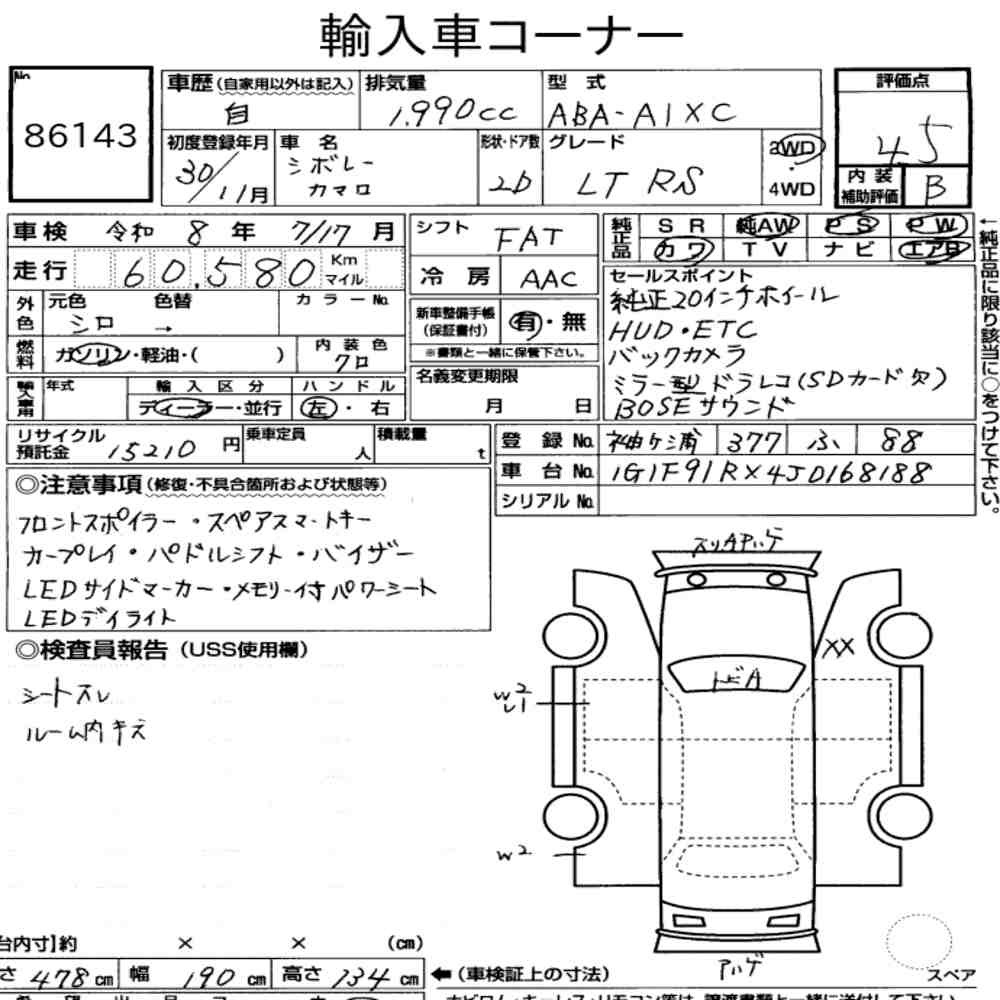 輸入車コーナー
No.
86143
車歴(自家用以外は記入)
自
排気量
1.990cc
型式
ABA-A1XC
評価点
4.5
初度登録年月
30/11月
車名
シボレー
カマロ
形状・ドア数
2D
グレード
LT RS
2WD
・
4WD
内装
補助評価
B
車検 令和 8年 7/17月
シフト
FAT
純正品
SR 純AW PS PW
カワ TV ナビ エアB
走行 60,580 Km マイル
冷房 AAC
セールスポイント
純正20インチホイール
HUD・ETC
バックカメラ
ミラー型ドラレコ(SDカード欠)
BOSEサウンド
外色
元色
シロ
色替
→
カラーNo.
新車整備手帳
(保証書付)
有・無
※書類と一緒に保管下さい。
燃料
ガソリン・軽油・( )
内装色
クロ
輸入車用
年式
輸入区分
ディーラー・並行
ハンドル
左・右
名義変更期限
月 日
←純正品に限り該当に○をつけて下さい。
リサイクル
預託金
15210円
乗車定員
人
積載量
t
登録No. 袖ケ浦 377 ふ 88
車台No. 1G1F91RX4J0168188
シリアルNo.
◎注意事項(修復・不具合箇所および状態等)
フロントスポイラー・スペアスマートキー
カープレイ・パドルシフト・バイザー
LEDサイドマーカー・メモリー付パワーシート
LEDデイライト
◎検査員報告(USS使用欄)
シートスレ
ルーム内キズ
スリAアゲ
XX
トビA
W2
W2
アゲ
スペア
台内寸】約 × × (cm)
さ 478cm 幅 190cm 高さ 134cm
←(車検証上の寸法)